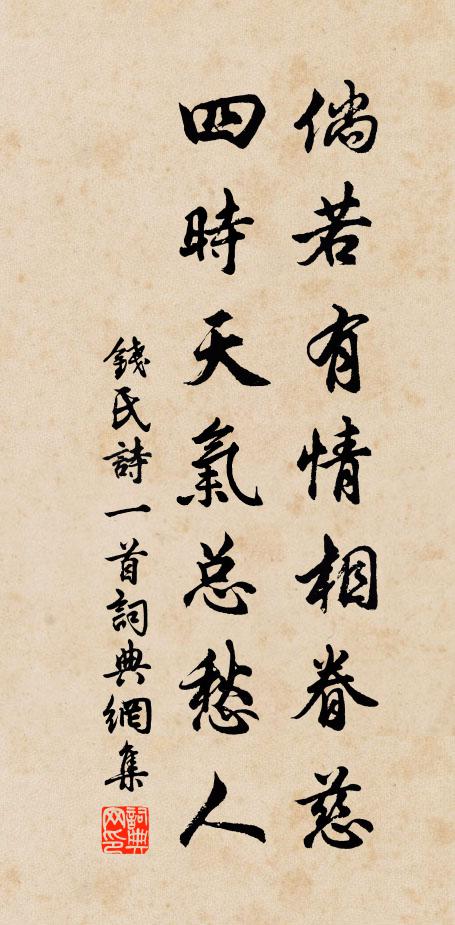 倘若有情相眷慈
四時天氣总愁人
錢氏詩一首詞典網集
詞典网印